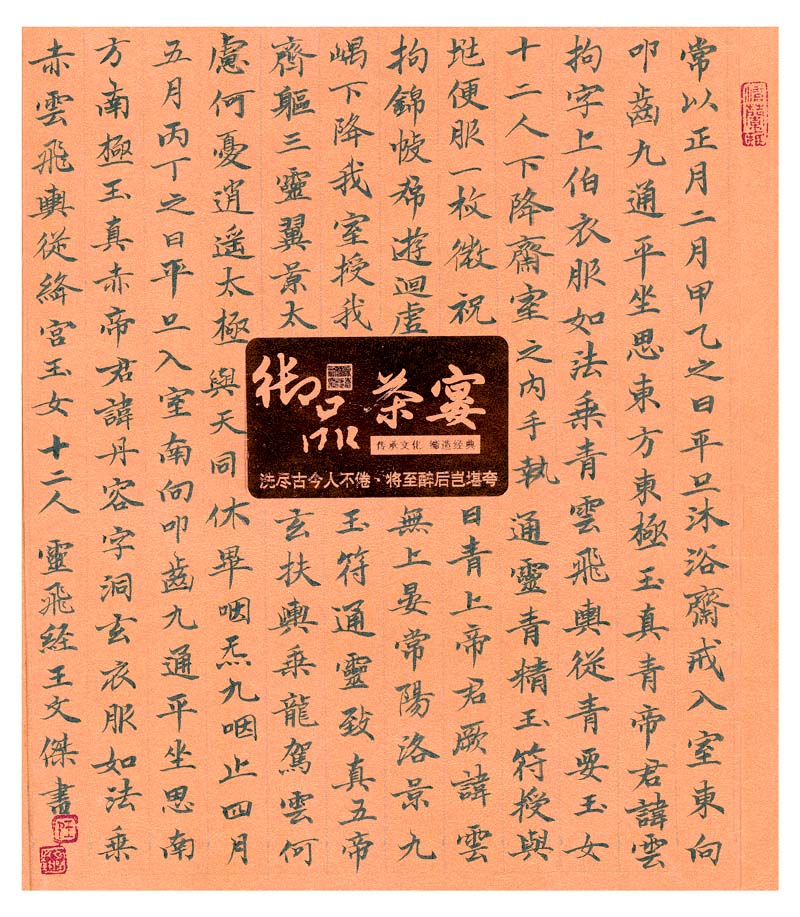 常以正月二月甲乙之日平旦沐浴齋戒入室東向
叩齒九通平坐思東方東極玉真青帝君諱雲
拘字上伯衣服如法乘青雲飛輿從青要玉女
十二人下降齋室之内手執通靈青精玉符授與
便服一枚微祝曰青上帝君厥諱雲
拘錦帔帬遊迴虛無上晏常陽洛景九
嵎下降我室授我玉符通靈致真五帝
齊軀三靈翼景太玄扶輿乘龍駕雲何
慮何憂逍遥太極與天同休畢咽炁九咽止四月
五月丙丁之日平旦入室南向叩齒九通平坐思南
方南極玉真赤帝君諱丹容字洞玄衣服如法乘
赤雲飛輿從絳宮玉女十二人 靈飛经王文傑書
御品茶宴
传承文化 缔造经典
洗尽古今人不倦·将至醉后岂堪夸